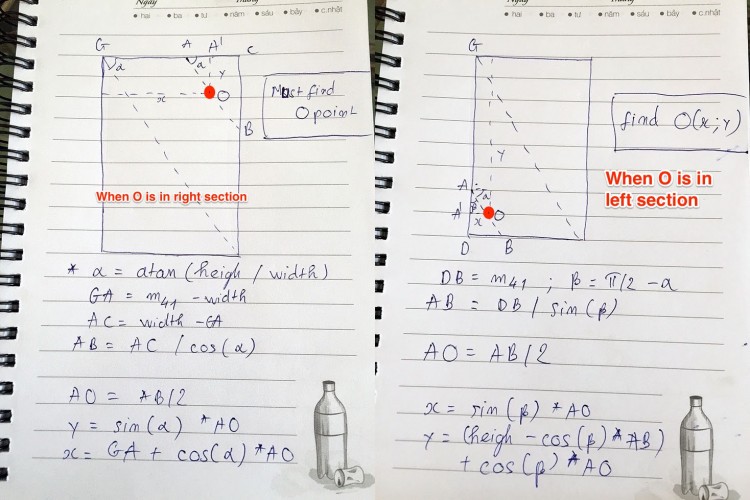 Ngày
• hai • ba • tư • năm • sáu • bảy • c.nhật
G A A' C
α a Y
x O
B
Must find
O point
When O is in right section
* α = atan (heigh / width)
GA = m41 - width
AC = width - GA
AB = AC / cos(α)
AO = AB/2
Y = sin(α) * AO
x = GA + cos(α) * AO
• hai • ba • tư • năm • sáu • bảy • c.nhật
G
Y
A a
A' β O
x
D B
find O(x;Y)
When O is in
left section
DB = m41 ; β = π/2 - α
AB = DB / sin(β)
AO = AB/2
x = sin(β) * AO
Y = (heigh - cos(β) * AB)
+ cos(β) * AO